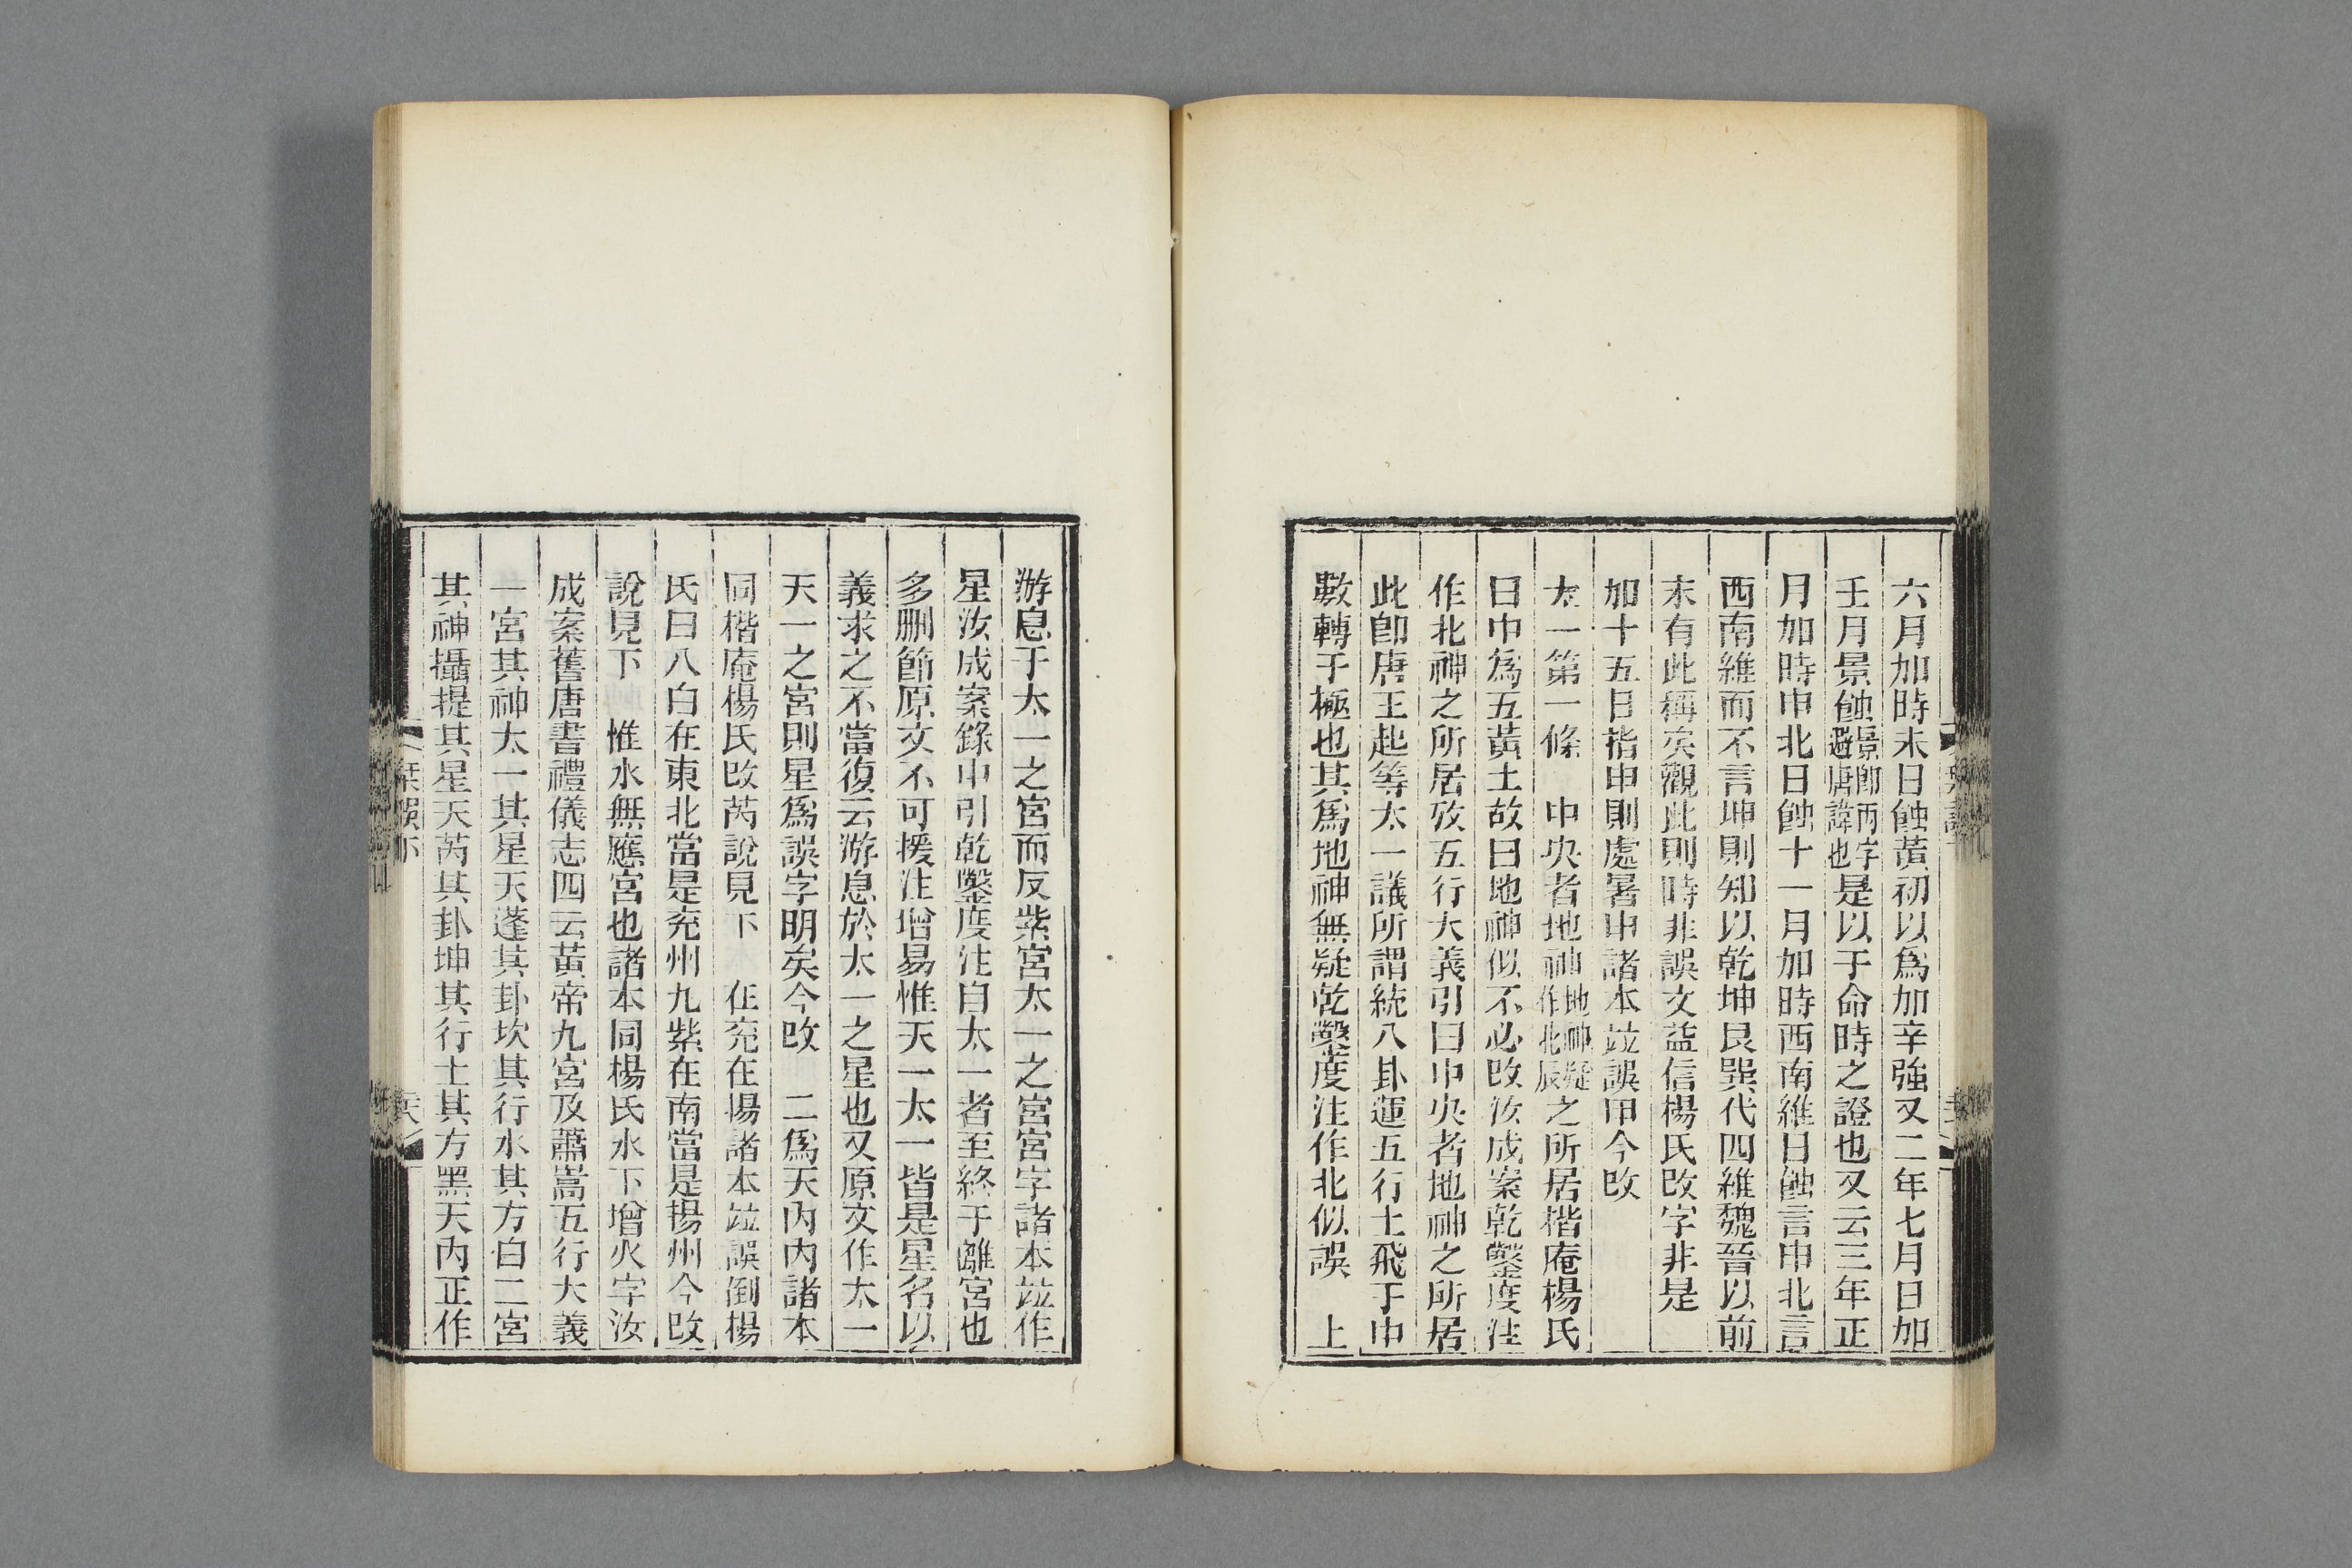 六月加時未日蝕黃初以爲加辛強又二年七月日加
壬月景蝕景卽丙字避唐諱也是以于命時之證也又云三年正
月加時申北日蝕十一月加時西南維日蝕言申北言
西南維而不言坤則知以乾坤艮巽代四維魏晉以前
末有此稱矣觀此則時非誤文益信楊氏改字非是
加十五日指申則處暑申諸本竝誤甲今改
太一第一條　中央者地神地神疑作北辰之所居楷庵楊氏
日中爲五黃土故曰地神似不必改汝成案乾鑿度注
作北神之所居攷五行大義引曰中央者地神之所居
此卽唐王起等太一議所謂統八卦運五行土飛于中
數轉于極也其爲地神無疑乾鑿度注作北似誤　上
游息于太一之宮而反紫宮太一之宮宮字諸本竝作
星汝成案錄中引乾鑿度注自太一者至終于離宮也
多刪節原文不可援注增易惟天一太一皆是星名以
義求之不當復云游息於太一之星也又原文作太一
天一之宮則星爲誤字明矣今改　二爲天內內諸本
同楷庵楊氏改芮說見下　在兗在揚諸本竝誤倒楊
氏曰八白在東北當是兗州九紫在南當是揚州今改
說見下　惟水無應宮也諸本同楊氏水下增火字汝
成案舊唐書禮儀志四云黃帝九宮及蕭嵩五行大義
一宮其神太一其星天蓬其卦坎其行水其方白二宮
其神攝提其星天芮其卦坤其行土其方黑天內正作